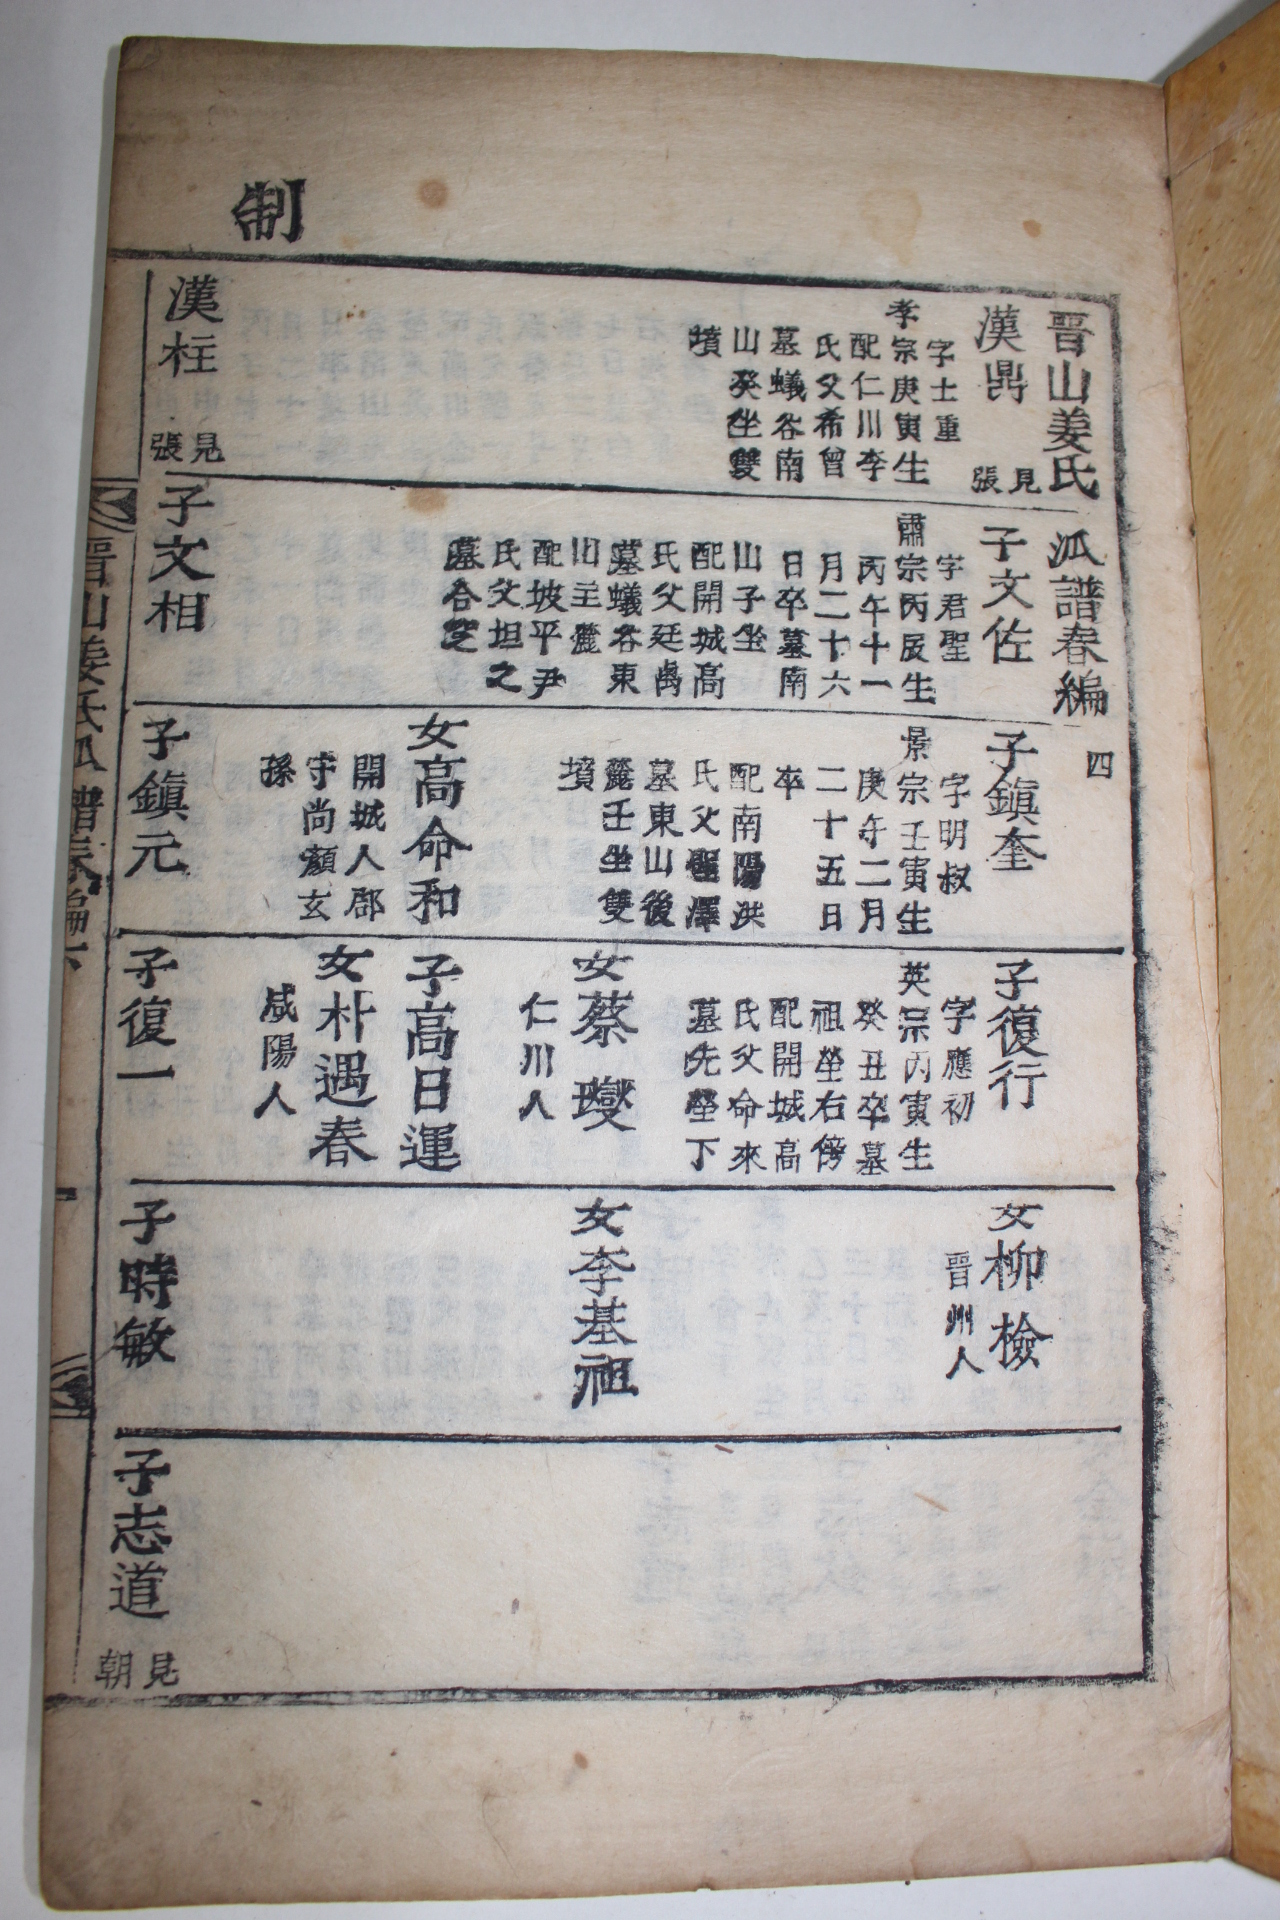 制
晋山姜氏 派譜春編 四
漢鼎 見張
字士重
孝宗庚寅生
配仁川李
氏父希曾
墓蟻谷南
山癸坐雙
墳
漢柱 見張
子文佐
字君聖
肅宗丙辰生
丙午十一
月二十六
日卒墓南
山子坐
配開城高
氏父廷禼
墓蟻谷東
山主麓
配坡平尹
氏父坦之
墓合窆
子文相
子鎭奎
字明叔
景宗壬寅生
庚午二月
二十五日
卒
配南陽洪
氏父聖澤
墓東山後
麓壬坐雙
墳
女高命和
開城人郡
守尚顏玄
孫
子鎭元
子復行
字應初
英宗丙寅生
癸丑卒墓
祖塋右傍
配開城高
氏父命來
墓先塋下
女蔡璦
仁川人
子高日運
女朴遇春
咸陽人
子復一
女柳檢
晋州人
女李基祖
子時敏
子志道 見朝
晋山姜氏派譜春編